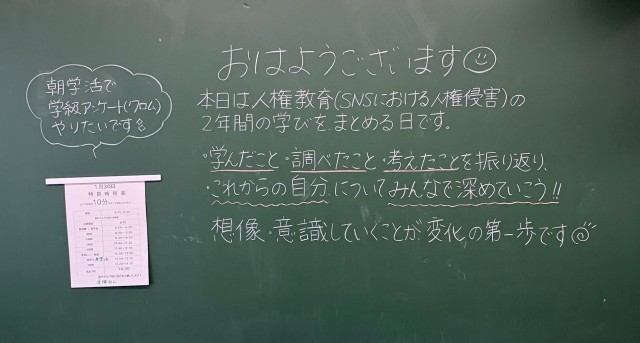 おはようございます
本日は人権教育(SNSにおける人権侵害)の
2年間の学びを、まとめる日です。
・学んだこと・調べたこと・考えたことを振り返り、
・これからの自分についてみんなで深めていこう!!
想像・意識していくことが変化の第一歩です
朝学活で
学級アンケート(クロム)
やりたいです
1月30日
特別時程表
10分